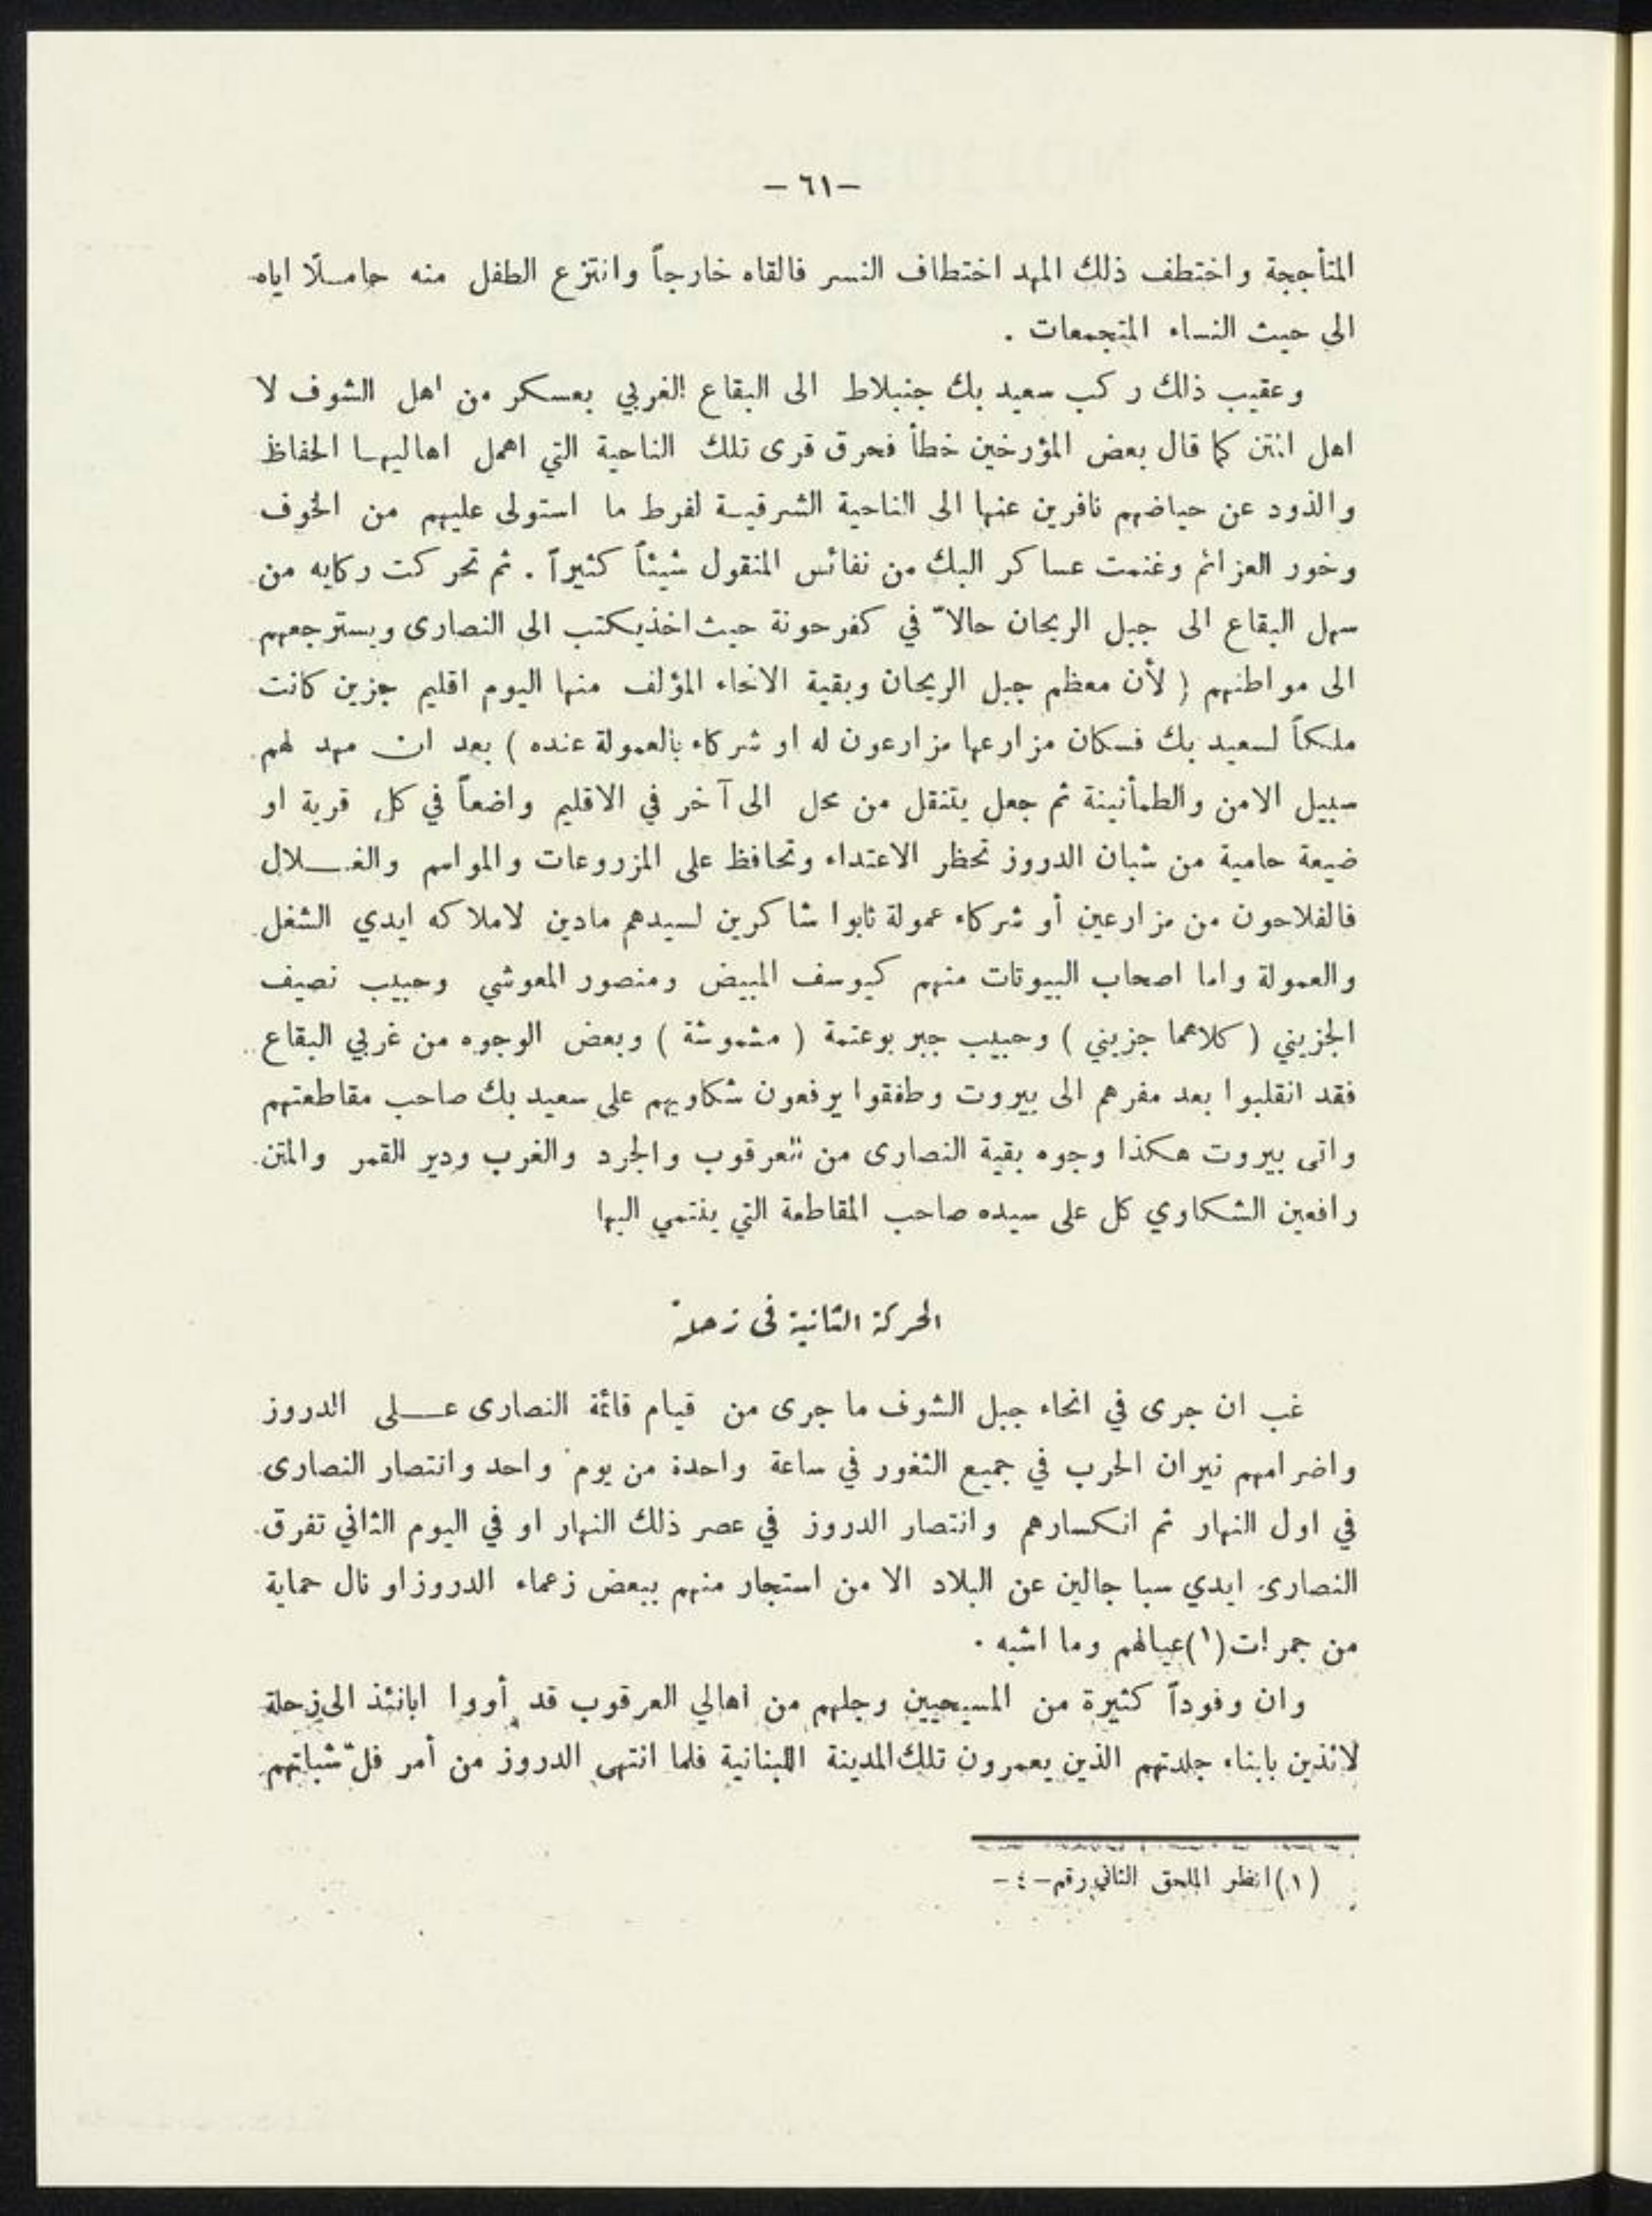 –٦١–
المتأججة واختطف ذلك المهد اختطاف النسر فالقاه خارجاً وانتزع الطفل منه حامـلًا اياه
الى حيث النساء المتجمعات .
وعقيب ذلك ركب سعيد بك جنبلاط الى البقاع الغربي بعسكر من اهل الشوف لا
اهل المتن كما قال بعض المؤرخين خطأ فحرق قرى تلك الناحية التي اهمل اهاليهـا الحفاظ
والذود عن حياضهم نافرين عنها الى الناحية الشرقيـة لفرط ما استولى عليهم من الخوف
وخور العزائم وغنمت عساكر البك من نفائس المنقول شيئاً كثيراً . ثم تحركت ركابه من
سهل البقاع الى جبل الريحان حالاّ في كفرحونة حيث اخذ يكتب الى النصارى ويسترجعهم
الى مواطنهم ( لأن معظم جبل الريحان وبقية الانحاء المؤلف منها اليوم اقليم جزين كانت
ملكاً لسعيد بك فسكان مزارعها مزارعون له او شركاء بالعمولة عنده ) بعد ان مهد لهم
سبيل الامن والطمأنينة ثم جعل يتنقل من محل الى آخر في الاقليم واضعاً في كل قرية او
ضيعة حامية من شبان الدروز تحظر الاعتداء وتحافظ على المزروعات والمواسم والغـــلال
فالفلاحون من مزارعين أو شركاء عمولة ثابوا شاكرين لسيدهم مادين لاملاكه ايدي الشغل
والعمولة واما اصحاب البيوتات منهم كيوسف المبيض ومنصور المعوشي وحبيب نصيف
الجزيني ( كلاهما جزيني ) وحبيب جبر بوعتمة ( مشموشة ) وبعض الوجوه من غربي البقاع
فقد انقلبوا بعد مفرهم الى بيروت وطفقوا يرفعون شكاويهم على سعيد بك صاحب مقاطعتهم
واتى بيروت هكذا وجوه بقية النصارى من العرقوب والجرد والغرب ودير القمر والمتن
رافعين الشكاوي كل على سيده صاحب المقاطعة التي ينتمي اليها
الحركة الثانية في زحلة
غب ان جرى في انحاء جبل الشوف ما جرى من قيام قائمة النصارى عـــلى الدروز
واضرامهم نيران الحرب في جميع الثغور في ساعة واحدة من يوم واحد وانتصار النصارى
في اول النهار ثم انكسارهم وانتصار الدروز في عصر ذلك النهار او في اليوم الثاني تفرق
النصارى ايدي سبا جالين عن البلاد الا من استجار منهم ببعض زعماء الدروز او نال حماية
من جمرات(١)عيالهم وما اشبه .
وان وفوداً كثيرة من المسيحيين وجلهم من اهالي العرقوب قد أووا ابانئذ الى زحلة
لائذين بابناء جلدتهم الذين يعمرون تلك المدينة اللبنانية فلما انتهى الدروز من أمر فلّ شباتهم
(١)انظر الملحق الثاني رقم–٤–